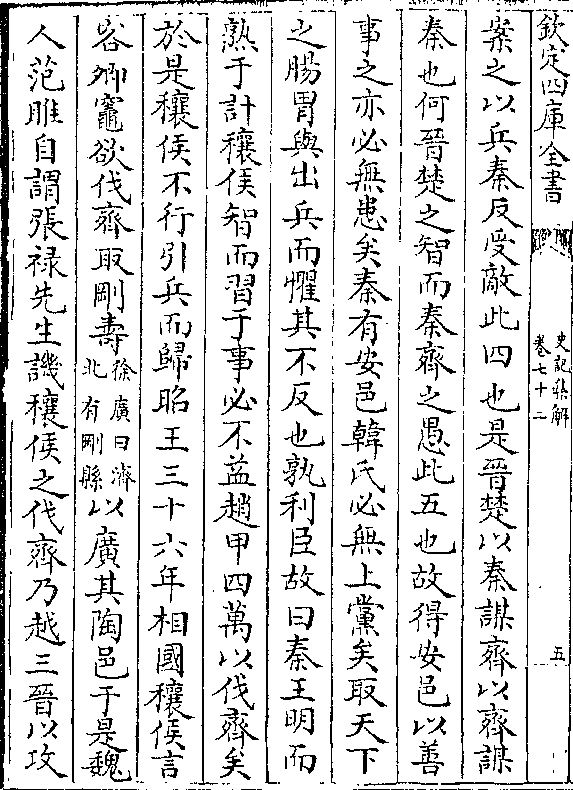 欽定四庫全書
史記集解
卷七十二
五
案之以兵秦反受敵此四也是晉楚以秦謀齊以齊謀
秦也何晉楚之智而秦齊之愚此五也故得安邑以善
事之亦必無患矣秦有安邑韓氏必無上黨矣取天下
之腸胃與出兵而懼其不反也孰利臣故曰秦王明而
熟于計穰侯智而習于事必不益趙甲四萬以伐齊矣
於是穰侯不行引兵而歸昭王三十六年相國穰侯言
客卿竈欲伐齊取剛壽徐廣曰濟北有剛縣以廣其陶邑于是魏
人范睢自謂張祿先生譏穰侯之伐齊乃越三晉以攻